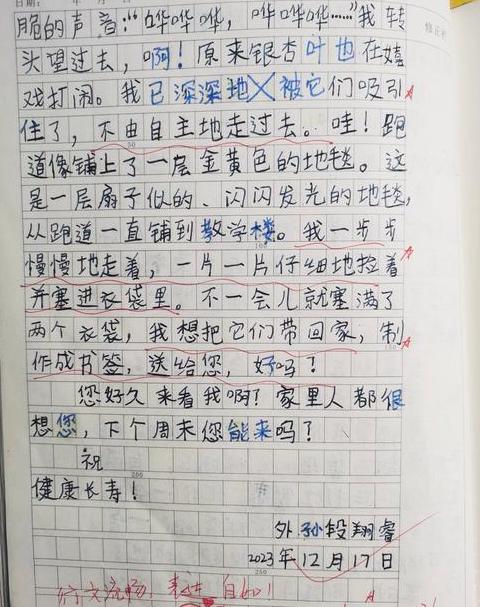 脆的声音:“哗哗哗，哗哗哗……”我转
头望过去，啊！原来银杏叶也在嬉
戏打闹。我已深深地被它们吸引
住了，不由自主地走过去。哇！跑
道像铺上了一层金黄色的地毯。这
是一层扇子似的、闪闪发光的地毯，
从跑道一直铺到教学楼。我一步步
慢慢地走着，一片一片仔细地捡着
并塞进衣袋里。不一会儿就塞满了
两个衣袋，我想把它们带回家，制
作成书签，送给您，好吗？
您好久来看我啊？家里人都很
想您，下个周末您能来吗？
祝
健康长寿！
外孙段翔睿
2023年12月17日
行文流畅，表达自如！